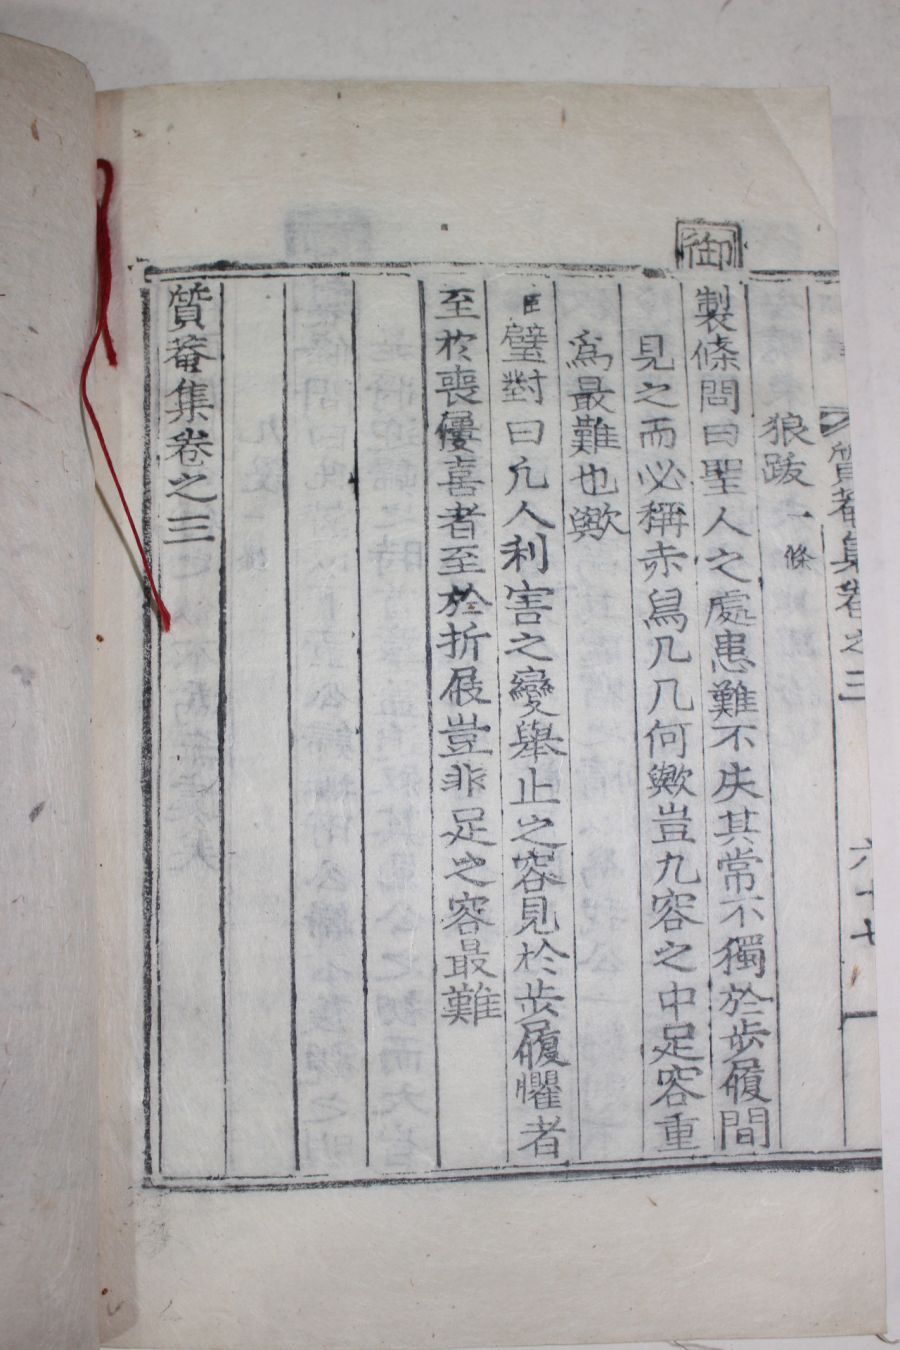 質菴集卷之三
六十七
狼跋一條
御
製條問曰聖人之處患難不失其常不獨於步履間
見之而必稱赤舃几几何歟豈九容之中足容重
爲最難也歟
臣璧對曰凡人利害之變舉止之容見於步履懼者
至於喪屨喜者至於折屐豈非足之容最難
質菴集卷之三